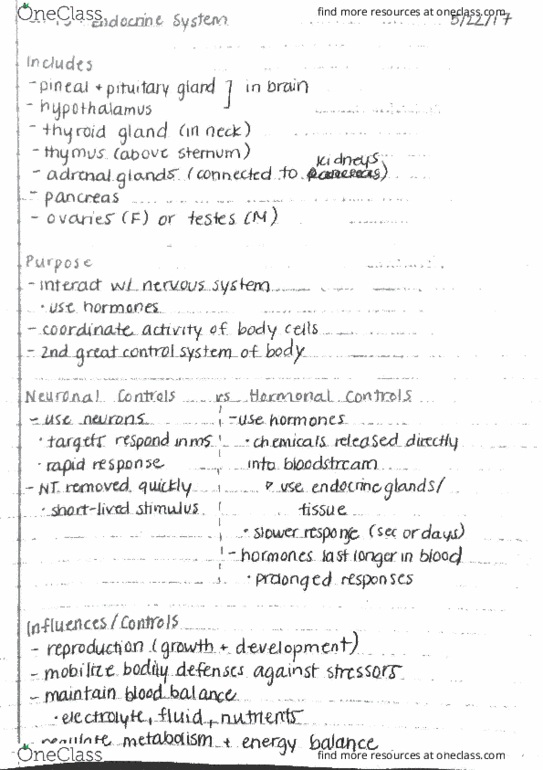 OneClass
find more resources at oneclass.com
Endocrine System 5/22/17
Includes
- pineal + pituitary gland ] in brain
- hypothalamus
- thyroid gland (in neck)
- thymus (above sternum)
kidneys
- adrenal glands (connected to pancreas)
- pancreas
- ovaries (F) or testes (M)
Purpose
- interact w/ nervous system
• use hormones
- coordinate activity of body cells
- 2nd great control system of body
Neuronal Controls vs Hormonal Controls
- use neurons - use hormones
• targets respond in ms • chemicals released directly
• rapid response into bloodstream
- NT removed quickly ▹ use endocrine glands/
• short-lived stimulus tissue
• slower response (sec or days)
- hormones last longer in blood
• prolonged responses
Influences/Controls
- reproduction (growth + development)
- mobilize bodily defenses against stressors
- maintain blood balance
• electrolyte, fluid, nutrients
- regulate metabolism + energy balance
OneClass
find more resources at oneclass.com